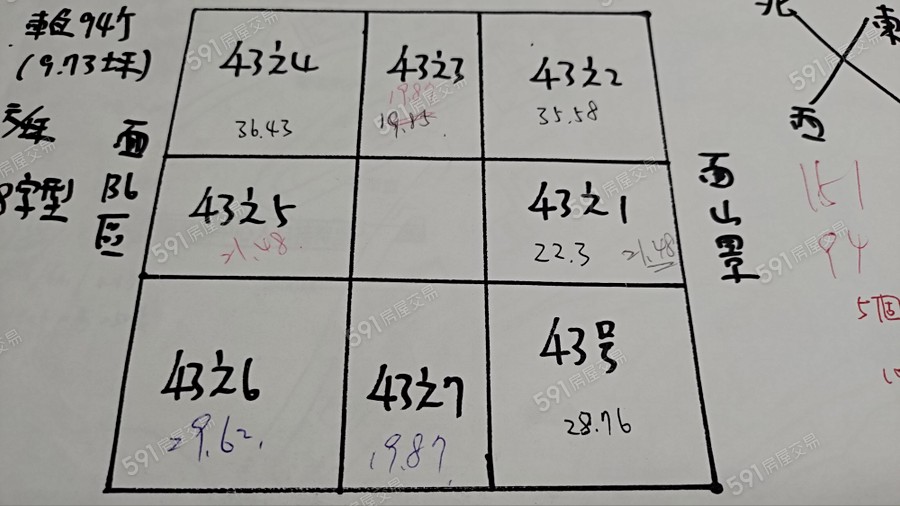 車位94个
(9.73坪)
面
B6
區
43之4
36.43
43之3
19.87
43之2
35.58
北
東
西
面
山
151
94
5個
43之5
21.48
43之1
22.3
21.48
43之6
29.62
43之7
19.87
43号
28.76
591房屋交易